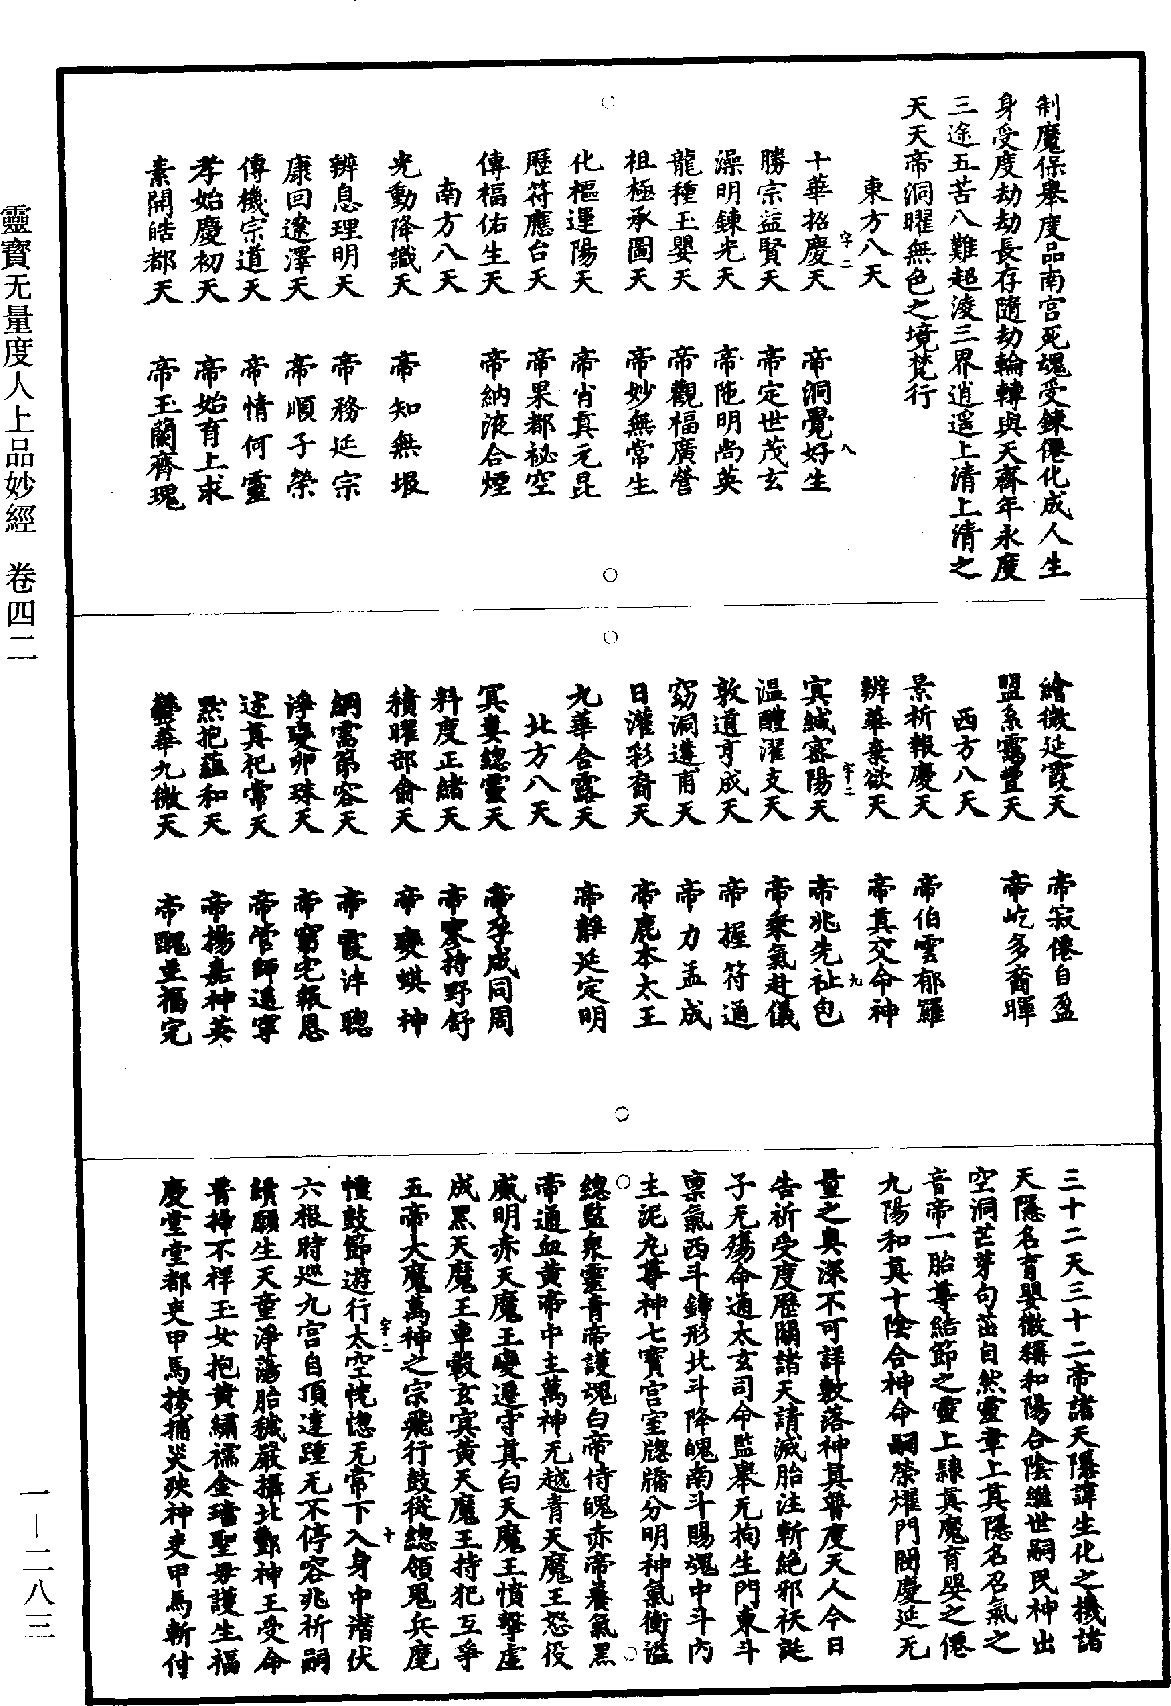 制魔保舉度品南宮死魂受鍊僊化成人生
身受度劫劫長存隨劫輪轉與天齊年永度
三途五苦八難超淩三界逍遥上清上清之
天天帝洞曜無色之境梵行
東方八天
十華招慶天 帝洞覺好生
勝宗益賢天 帝定世茂玄
澡明鍊光天 帝陁明尚英
龍種玉嬰天 帝觀福廣營
祖極承圖天 帝妙無常生
化樞運陽天 帝肖真元昆
歷符應台天 帝果都祕空
傳福佑生天 帝納液合煙
南方八天
光動降識天 帝知無垠
辨息理明天 帝務延宗
康回遼澤天 帝順子榮
傳機宗道天 帝情何靈
孝始慶初天 帝始育上求
素開皓都天 帝玉蘭齊瑰
繪微延霞天 帝寂倦自盈
盟系靄豐天 帝屹多裔暉
西方八天
景析報慶天 帝伯雲郁羅
辨華棄欲天 帝真交命神
宾緘審陽天 帝兆先祉包
溫醴濯支天 帝乘氣赴儀
敦道亨成天 帝握符通
窈洞蓬甫天 帝力孟成
日灌彩裔天 帝鹿本太王
九華合露天 帝靜延定明
北方八天
冥婁總靈天 帝孚成同周
料度正緒天 帝寒持野舒
積曜部龠天 帝奭蜞神
網霈第容天 帝霞沣聰
淨瓊卯珠天 帝窮宅報恩
述真祀常天 帝管師遥寧
默抱蘊和天 帝揚嘉神英
鬱華九微天 帝醜並福完
三十二天三十二帝諸天隱諱生化之機諸
天隱名育嬰微稱和陽合陰繼世嗣民神出
空洞芒芽句茁自然靈章上真隱名召氣之
音帝一胎尊結節之靈上隸真魔育嬰之僊
九陽和真十陰合神命嗣榮燿門閥慶延无
量之奥深不可詳敷落神真普度天人今日
告祈受度歷關諸天請滅胎注斬絕邪祅誕
子无殤命通太玄司命監舉无拘生門東斗
稟氣西斗鑄形北斗降魄南斗賜魂中斗内
主泥丸尊神七寶宮室牕牖分明神氣衡溢
總監眾靈青帝護魂白帝侍魄赤帝養氣黑
帝通血黄帝中主萬神无越青天魔王怒役
威明赤天魔王變遷守真白天魔王憤擊虛
成黑天魔王車轂玄冥黄天魔王持犯互爭
五帝大魔萬神之宗飛行鼓從總領鬼兵麾
幢鼓節遊行太空恍惚无常下入身中潛伏
六根時巡九宮自頂達踵无不停容兆祈嗣
續願生天童淨蕩胎穢嚴攝北酆神王受命
普掃不祥玉女抱黄繡襦金璫聖母護生福
慶堂堂都吏甲馬搒捕災殃神吏甲馬斬付
靈寶无量度人上品妙經　卷四二
一—二八三